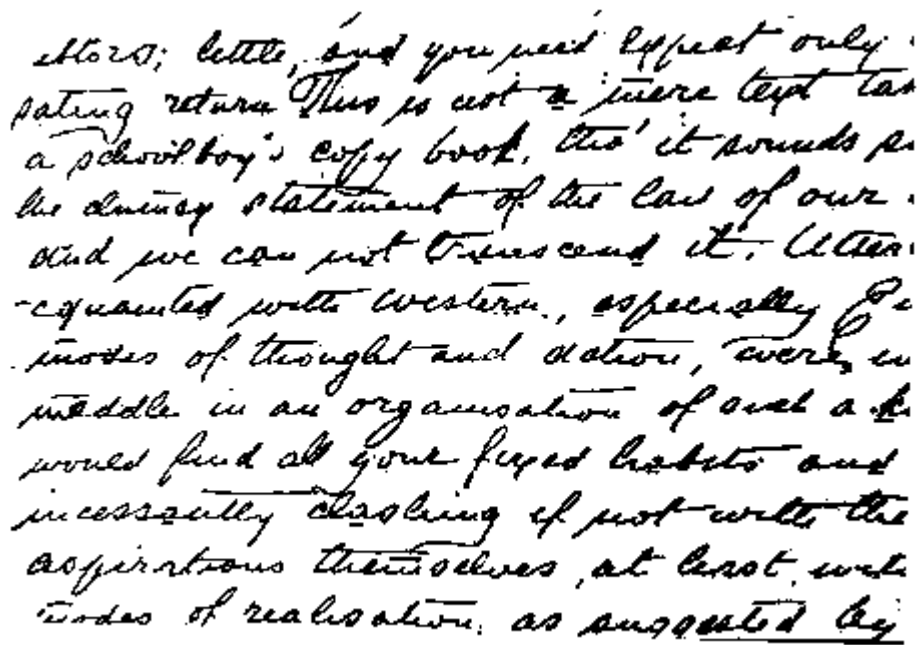 efforts; little, and you need expect only
sating return This is not a mere text
a schoolboy's copy book, tho' it sounds
the dreary statement of the law of our
and we can not transcend it. Utter
-cquainted with western, especially
modes of thought and action, were
meddle in an organisation of such a
would find all your fixed habits and
incessantly clashing if not with the
aspirations themselves, at least with
modes of realisation, as suggested by